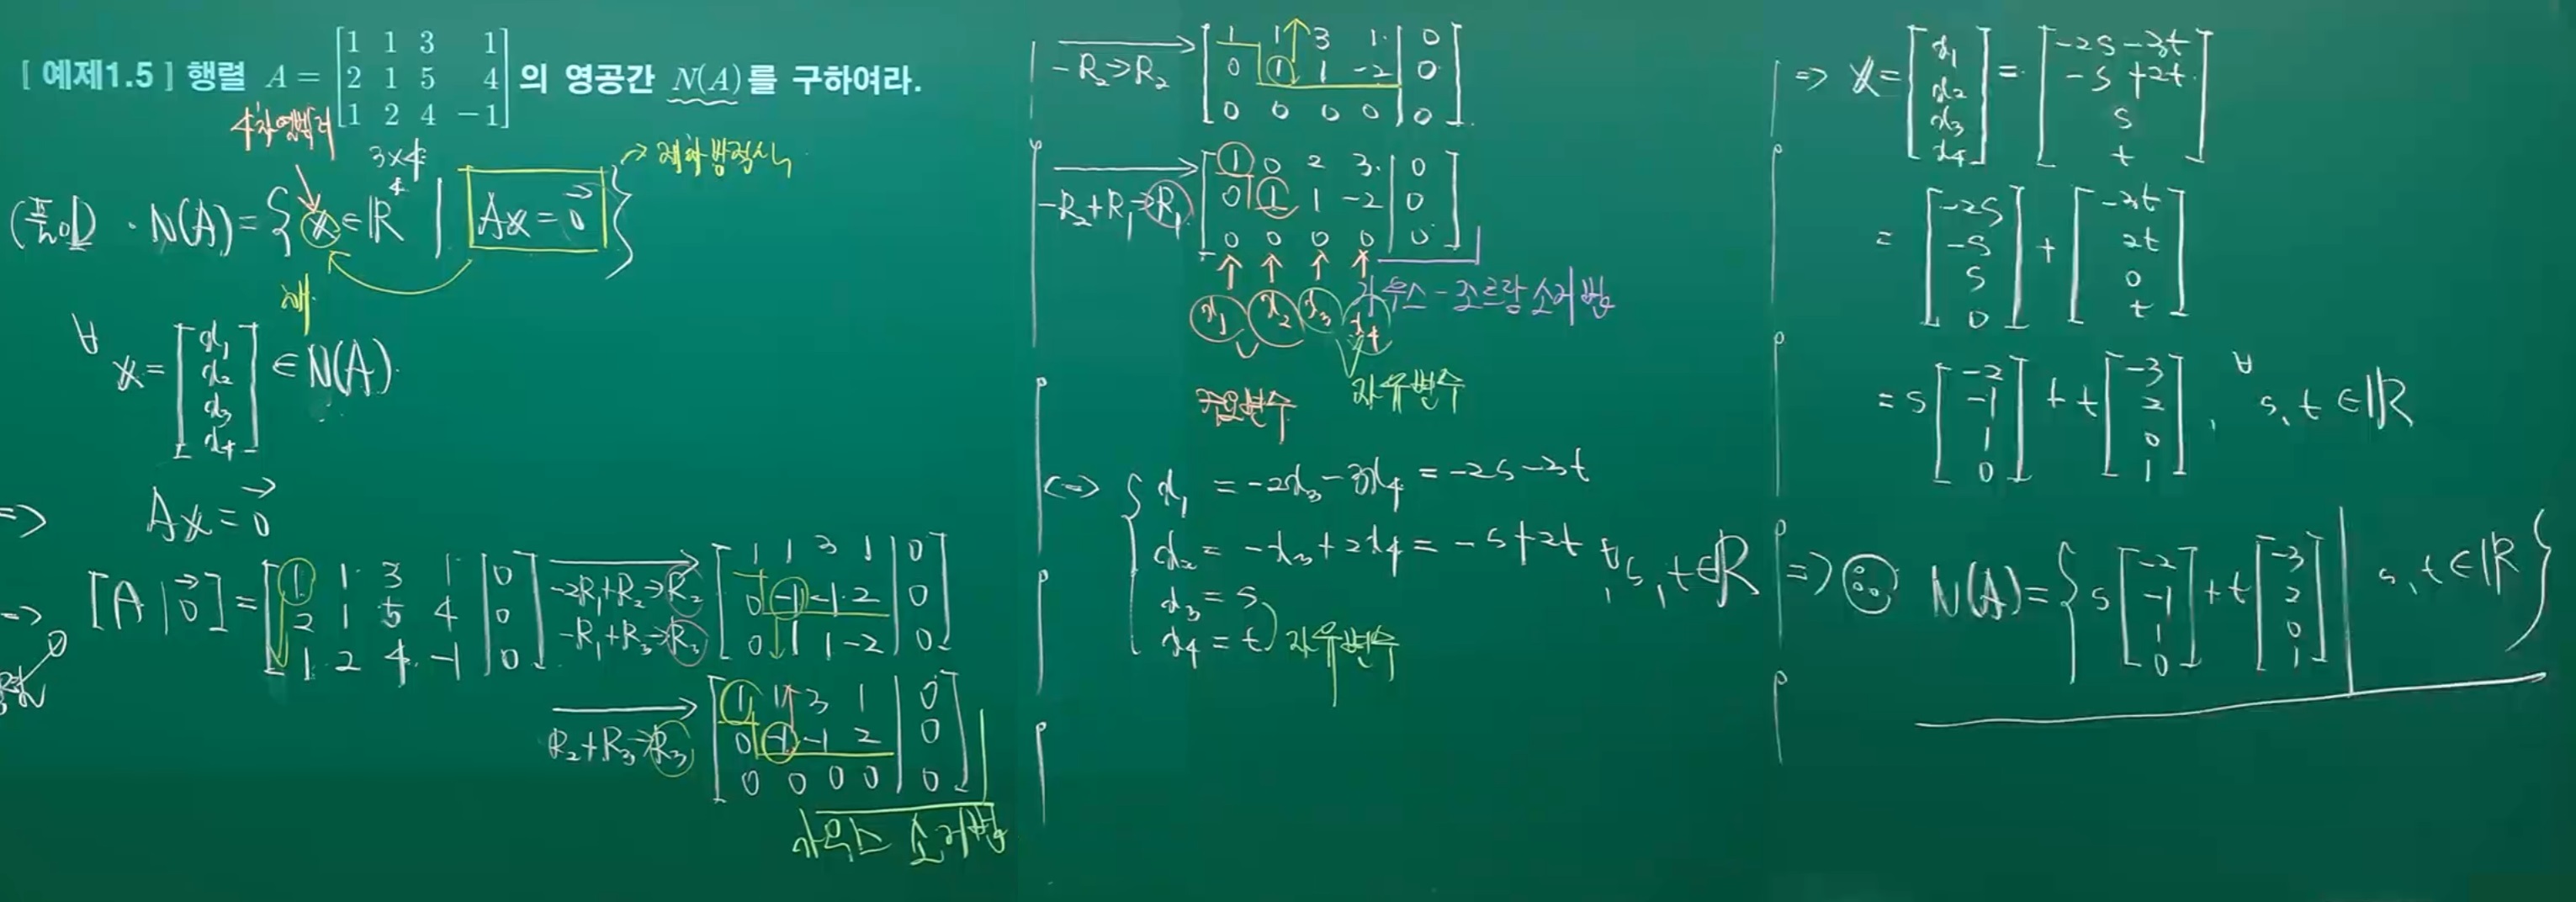 [ 예제1.5 ] 행렬 A = [1 1 3 1
2 1 5 4
1 2 4 −1] 의 영공간 N(A)를 구하여라.
4차 열벡터
3×4
(풀이) · N(A) = { x ∈ ℝ⁴ | Ax = 0⃗ }
→ 제차방정식
해
∀ x = [x₁
x₂
x₃
x₄] ∈ N(A)
⇒ Ax = 0⃗
⇒ [A | 0⃗] = [1 1 3 1 | 0
2 1 5 4 | 0
1 2 4 −1 | 0]
−2R₁+R₂→R₂
−R₁+R₃→R₃
[1 1 3 1 | 0
0 −1 −1 2 | 0
0 1 1 −2 | 0]
R₂+R₃→R₃
[1 1 3 1 | 0
0 −1 −1 2 | 0
0 0 0 0 | 0]
가우스 소거법
−R₂→R₂
[1 1 3 1 | 0
0 1 1 −2 | 0
0 0 0 0 | 0]
−R₂+R₁→R₁
[1 0 2 3 | 0
0 1 1 −2 | 0
0 0 0 0 | 0]
가우스-조르당 소거법
x₁ x₂ x₃ x₄
주요변수
자유변수
⇔ { x₁ = −2x₃−3x₄ = −2s−3t
x₂ = −x₃+2x₄ = −s+2t, ∀s, t ∈ ℝ
x₃ = s
x₄ = t
자유변수
⇒ x = [x₁
x₂
x₃
x₄] = [−2s−3t
−s+2t
s
t]
= [−2s
−s
s
0] + [−3t
2t
0
t]
= s[−2
−1
1
0] + t[−3
2
0
1], ∀ s, t ∈ ℝ
⇒ ∴ N(A) = { s[−2
−1
1
0] + t[−3
2
0
1] | s, t ∈ ℝ }